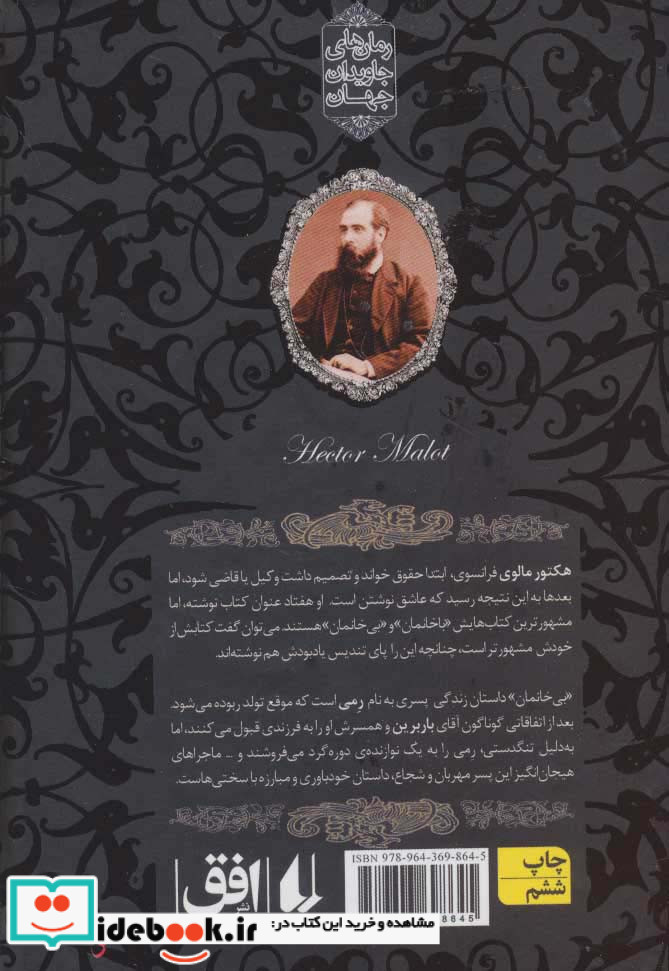 رمان‌های
جاویدان
جهان
Hector Malot
هکتور مالوی فرانسوی، ابتدا حقوق خواند و تصمیم داشت وکیل یا قاضی شود، اما
بعدها به این نتیجه رسید که عاشق نوشتن است. او هفتاد عنوان کتاب نوشته، اما
مشهورترین کتاب‌هایش «باخانمان» و «بی‌خانمان» هستند. می‌توان گفت کتابش از
خودش مشهورتر است، چنانچه این را پای تندیس یادبودش هم نوشته‌اند.
«بی‌خانمان» داستان زندگی پسری به نام رِمی است که موقع تولد ربوده می‌شود.
بعد از اتفاقاتی گوناگون آقای باربرین و همسرش او را به فرزندی قبول می‌کنند، اما
به‌دلیل تنگدستی، رمی را به یک نوازنده‌ی دوره‌گرد می‌فروشند و ... ماجراهای
هیجان‌انگیز این پسر مهربان و شجاع، داستان خودباوری و مبارزه با سختی‌هاست.
ISBN 978-964-369-864-5
چاپ
ششم
نشر
افق
8645
مشاهده و خرید این کتاب در:
idebook.ir